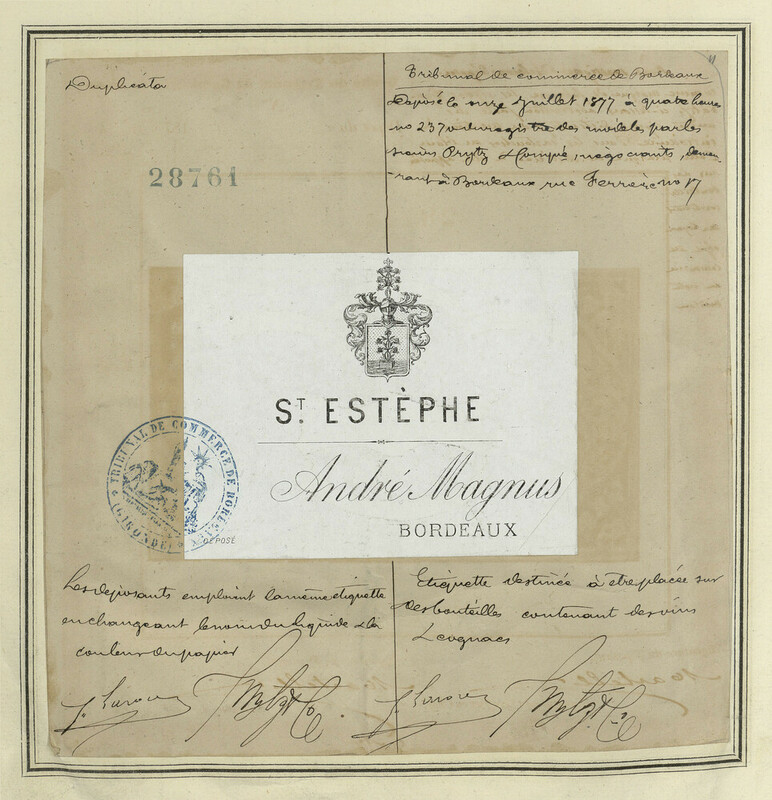 Duplicata
28761
11
Tribunal de commerce de Bordeaux
Déposé le onze Juillet 1877 à quatre heures
no 2370 du registre des modèles par les
sieurs Prytz & Compie, négociants, demeu-
-rant à Bordeaux rue Ferrère no 17
ST. ESTÈPHE
André Magnus
BORDEAUX
DÉPOSÉ
TRIBUNAL DE COMMERCE DE BORDEAUX
(GIRONDE)
Les déposants emploient la même etiquette
en changeant le nom du liquide & la
couleur du papier
Etiquette destinée à etre placée sur
des bouteilles contenant des vins
& cognacs
Prytz & Co
Prytz & Co